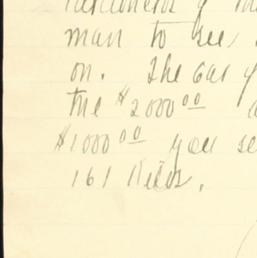 man to see
on. The Gas
the $2000 00
$1000 00 you se
161 Kilos.